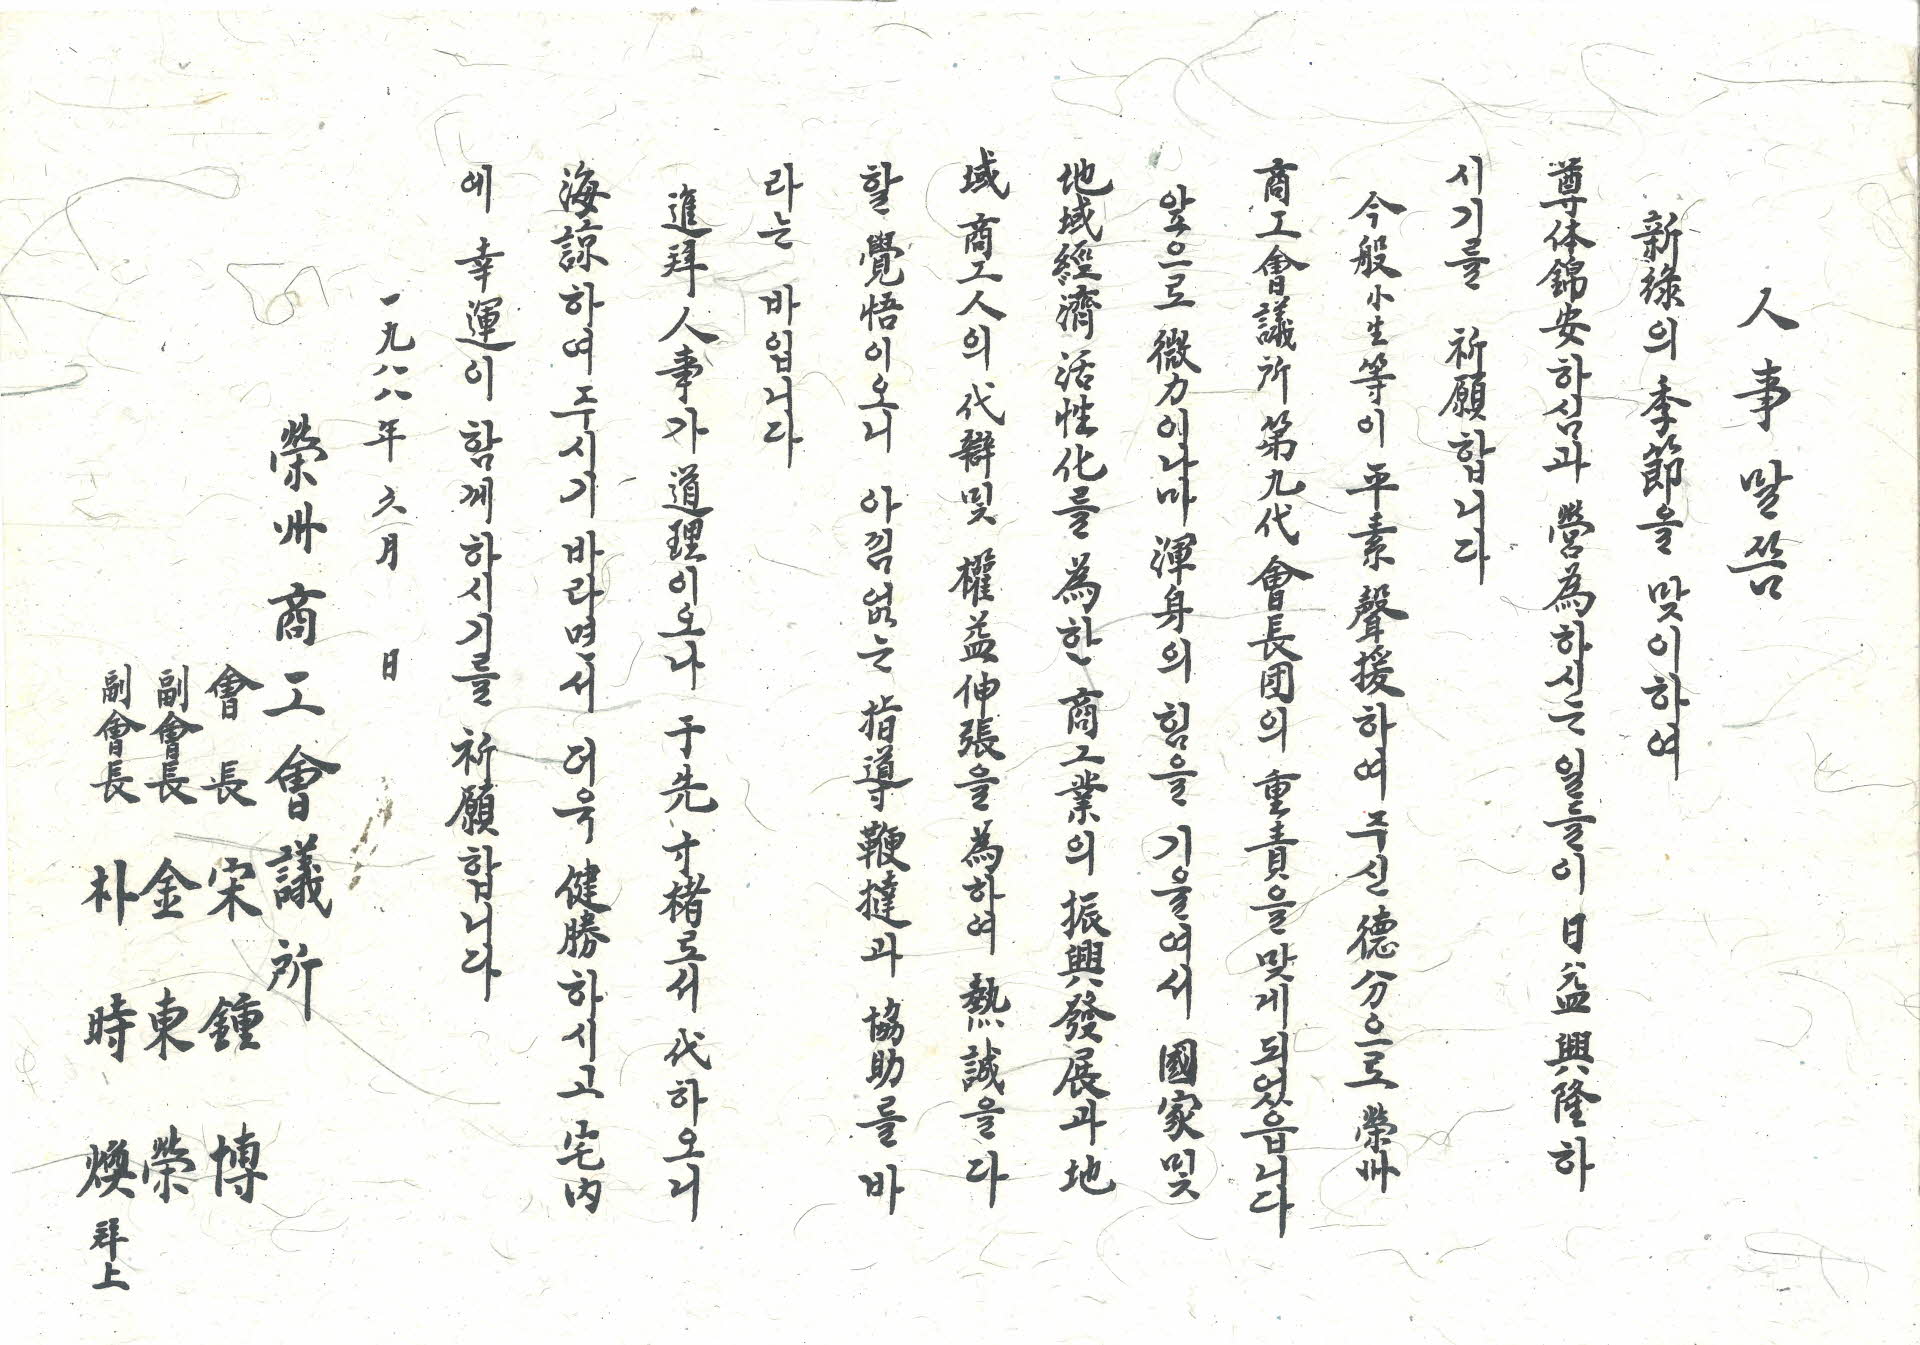 人事 말씀
新綠의 季節을 맞이하여
尊体錦安하심과 營為하시는 일들이 日益 興隆하
시기를 祈願합니다
今般 小生等이 平素 聲援하여 주신 德分으로 榮州
商工會議所 第九代 會長団의 重責을 맞게 되었읍니다
앞으로 微力이나마 渾身의 힘을 기울여서 國家 및
地域經濟 活性化를 為한 商工業의 振興發展과 地
域 商工人의 代辯 및 權益伸張을 為하여 熱誠을 다
할 覺悟이오니 아낌없는 指導鞭撻과 協助를 바
라는 바입니다
進拜人事가 道理이오나 于先 寸楮로서 代하오니
海諒하여 주시기 바라면서 더욱 健勝하시고 宅內
에 幸運이 함께하시기를 祈願합니다
一九八八年 六月 日
榮州商工會議所
會長 宋鍾博
副會長 金東榮
副會長 朴時煥 拜上